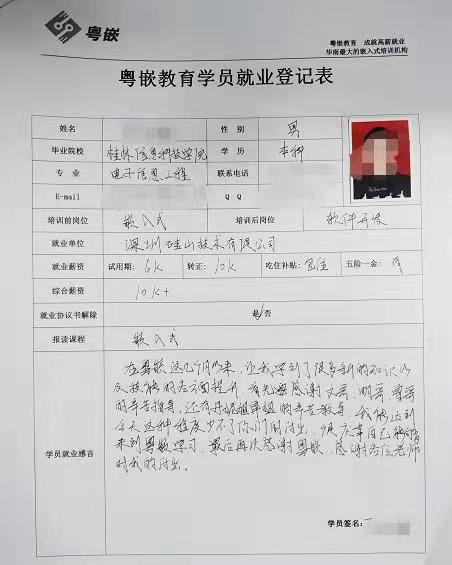 粤嵌
粤嵌教育 成就高薪就业
华南最大的嵌入式培训机构
粤嵌教育学员就业登记表
姓名 性 别 男
毕业院校 桂林信息科技学院 学 历 本科
专 业 电子信息工程 联系电话
E-mail Q Q
培训前岗位 嵌入式 培训后岗位 软件开发
就业单位 深圳硅山技术有限公司
就业薪资 试用期: 6k 转正: 10k 吃住补贴: 包住 五险一金:
综合薪资 10k+
就业协议书解除 是/否
报读课程 嵌入式
学员就业感言
在粤嵌这几个月以来,让我学到了很多新的知识以
及技能的各方面提升,首先要感谢文哥、明哥、曾哥
的辛苦指导,还有丹妮姐单姐的辛苦教导,我能达到
今天这种程度少不了你们的付出,很庆幸自己能够
来到粤嵌学习,最后再次感谢粤嵌,感谢各位老师
对我的付出。
学员签名: